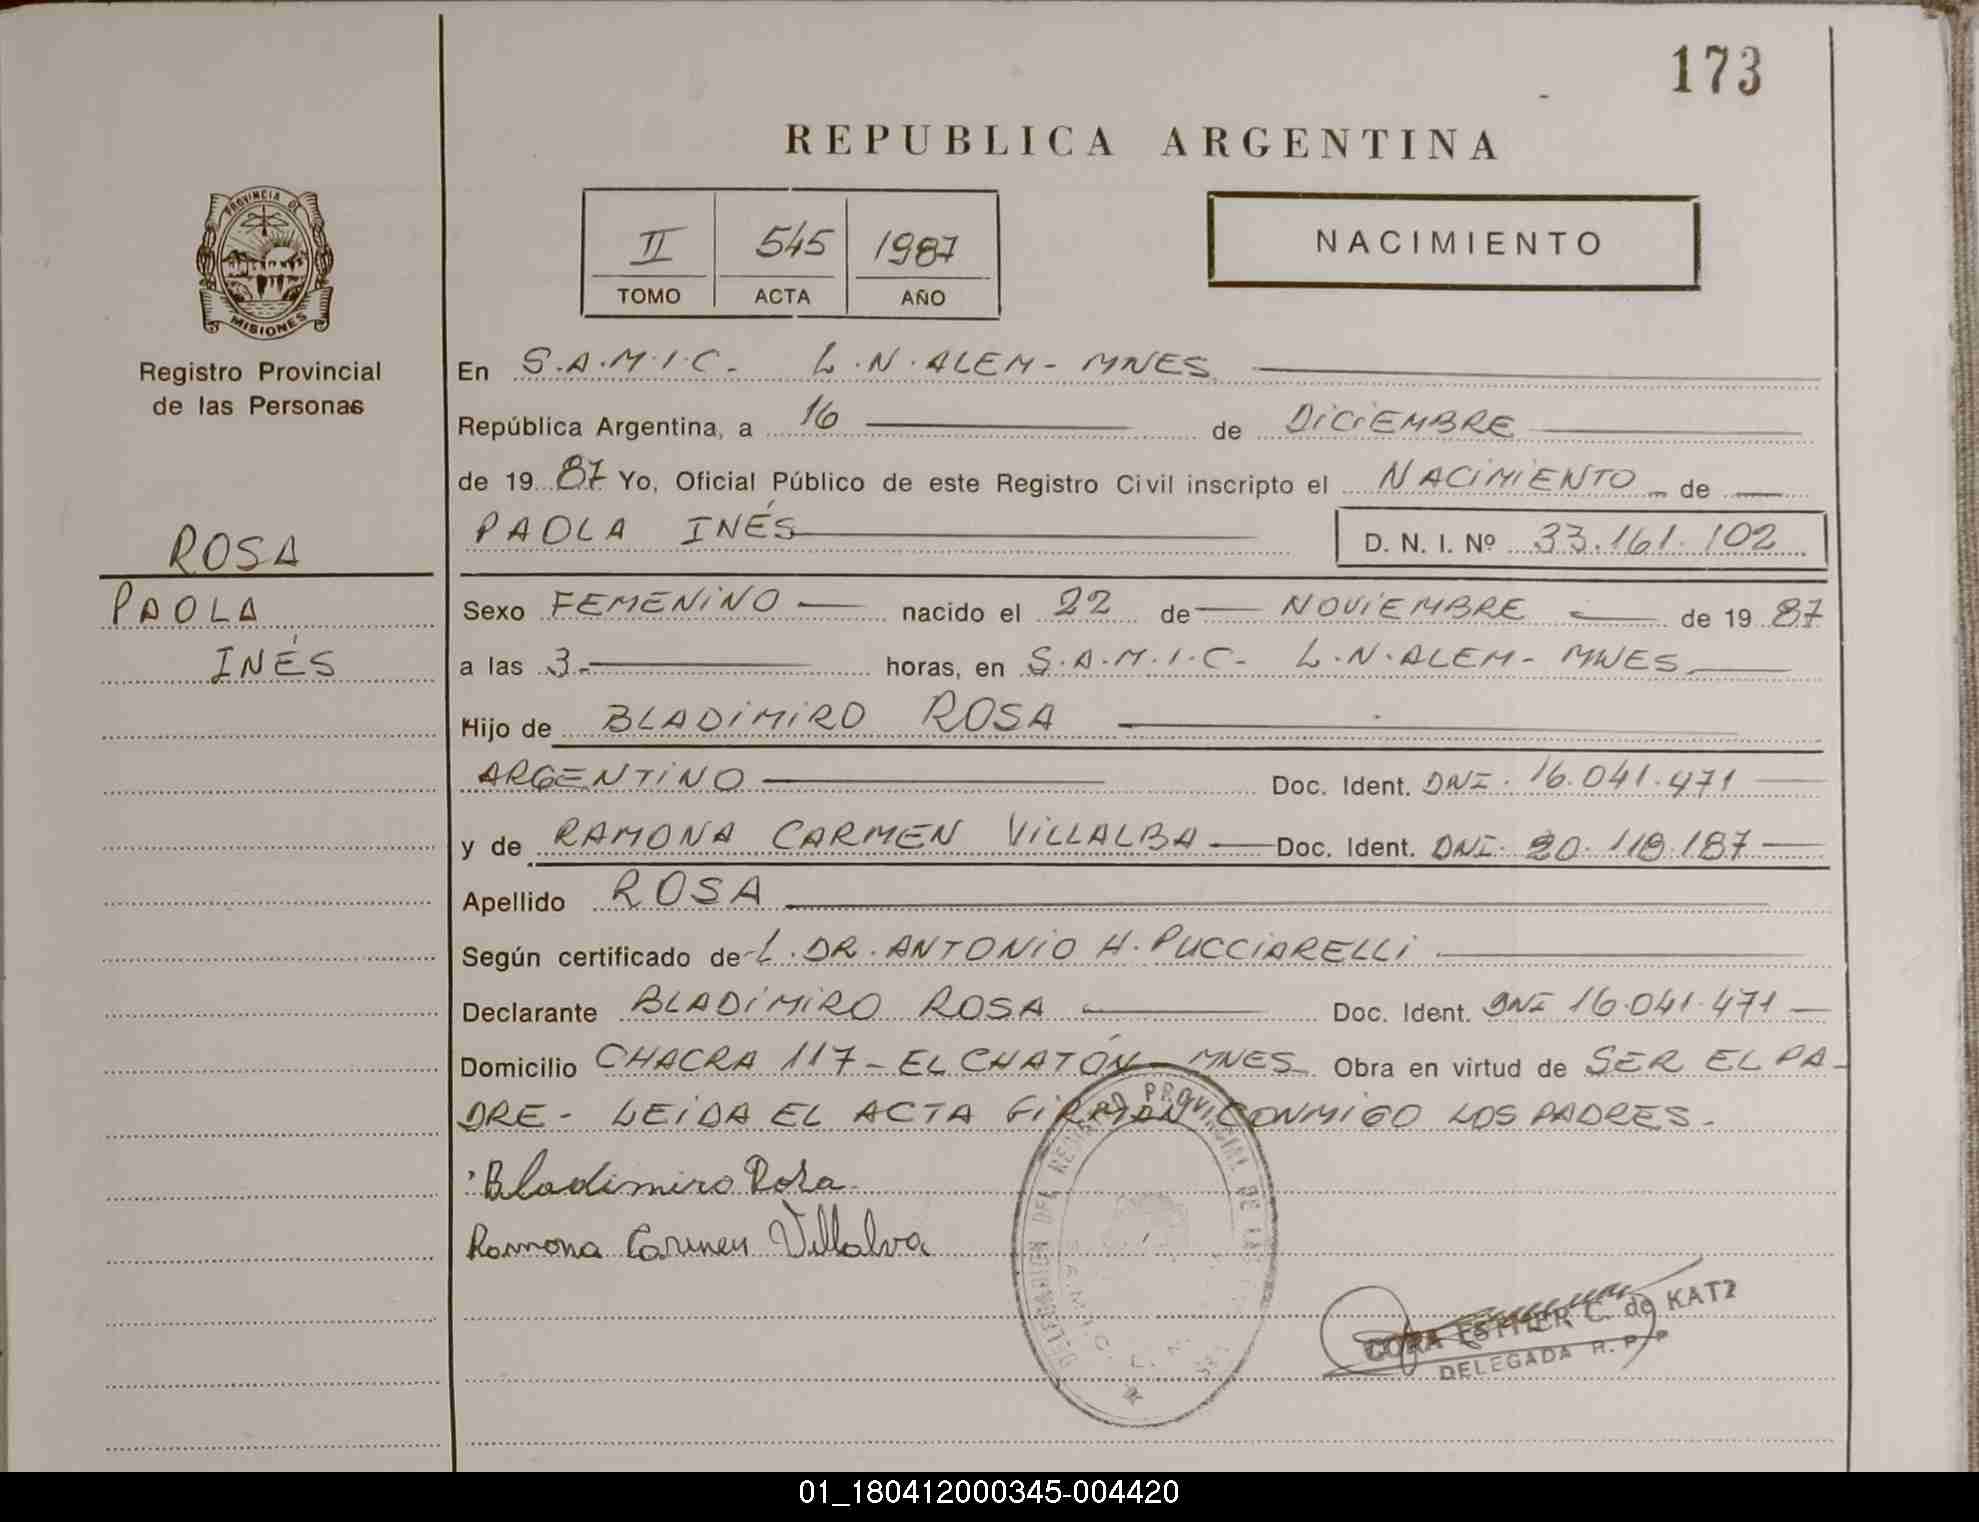 173
REPUBLICA ARGENTINA
PROVINCIA DE
MISIONES
Registro Provincial
de las Personas
II 545 1987
TOMO ACTA AÑO
NACIMIENTO
En S.A.M.I.C. L.N.ALEM- MNES
República Argentina, a 16 de DICIEMBRE
de 19 87 Yo, Oficial Público de este Registro Civil inscripto el NACIMIENTO de
PAOLA INÉS D. N. I. Nº 33.161.102
ROSA
PAOLA
INÉS
Sexo FEMENINO nacido el 22 de NOVIEMBRE de 19 87
a las 3.- horas, en S.A.M.I.C- L.N.ALEM- MNES
Hijo de BLADIMIRO ROSA
ARGENTINO Doc. Ident. DNI. 16.041.471
y de RAMONA CARMEN VILLALBA Doc. Ident. DNI. 20.118.187
Apellido ROSA
Según certificado de L. DR. ANTONIO H. PUCCIARELLI
Declarante BLADIMIRO ROSA Doc. Ident. DNI 16.041.471
Domicilio CHACRA 117- EL CHATÓN- MNES Obra en virtud de SER EL PA-
DRE- LEIDA EL ACTA FIRMAN CONMIGO LOS PADRES-
Bladimiro Rosa
Ramona Carmen Villalva
DELEGACION DEL REGISTRO PROVINCIAL DE LAS
S.A.M.I.C. L.N.
CORA ESTHER C. de KATZ
DELEGADA R. P. P
01_180412000345-004420